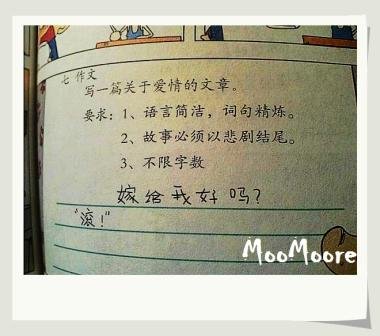 七 作文
写一篇关于爱情的文章。
要求：1、语言简洁，词句精炼。
2、故事必须以悲剧结尾。
3、不限字数
嫁给我好吗？
“滚！”
MooMoore